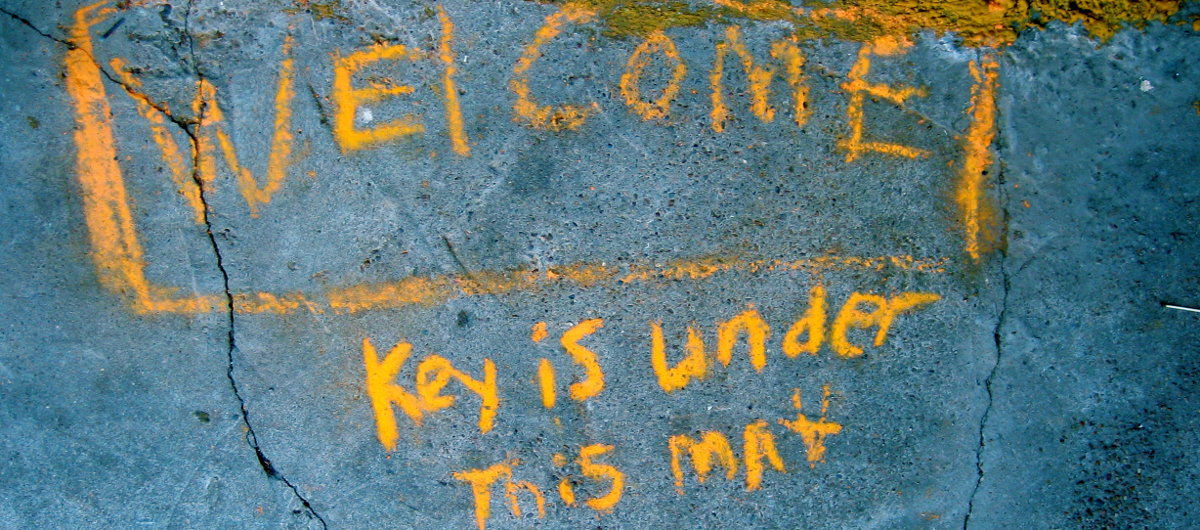 WElCOME
Key is under
This MAt